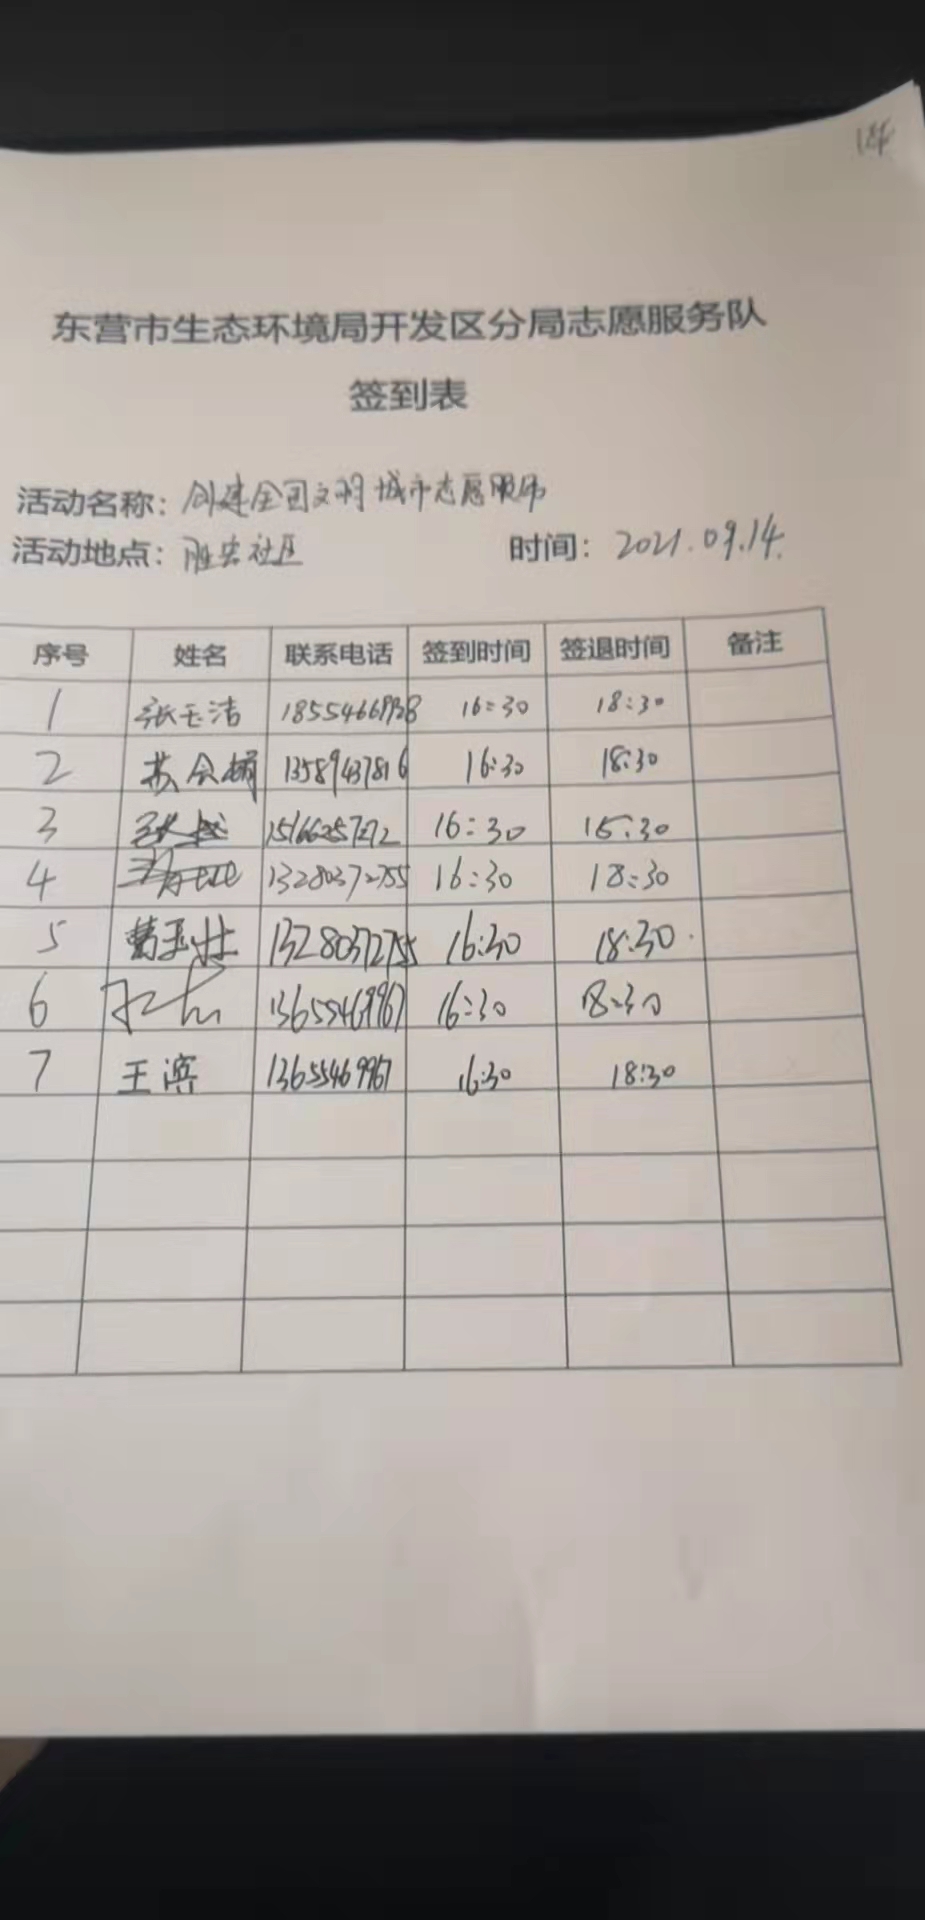 东营市生态环境局开发区分局志愿服务队
签到表
活动名称：创建全国文明城市志愿服务
活动地点：胜宏社区 时间：2021.09.14.
序号 姓名 联系电话 签到时间 签退时间 备注
1 张玉洁 16:30 18:30
2 苏会娟 13589437816 16:30 18:30
3 16:30 15:30
4 13280372755 16:30 18:30
5 13280372755 16:30 18:30
6 13655469967 16:30 18:30
7 王滨 13655469967 16:30 18:30